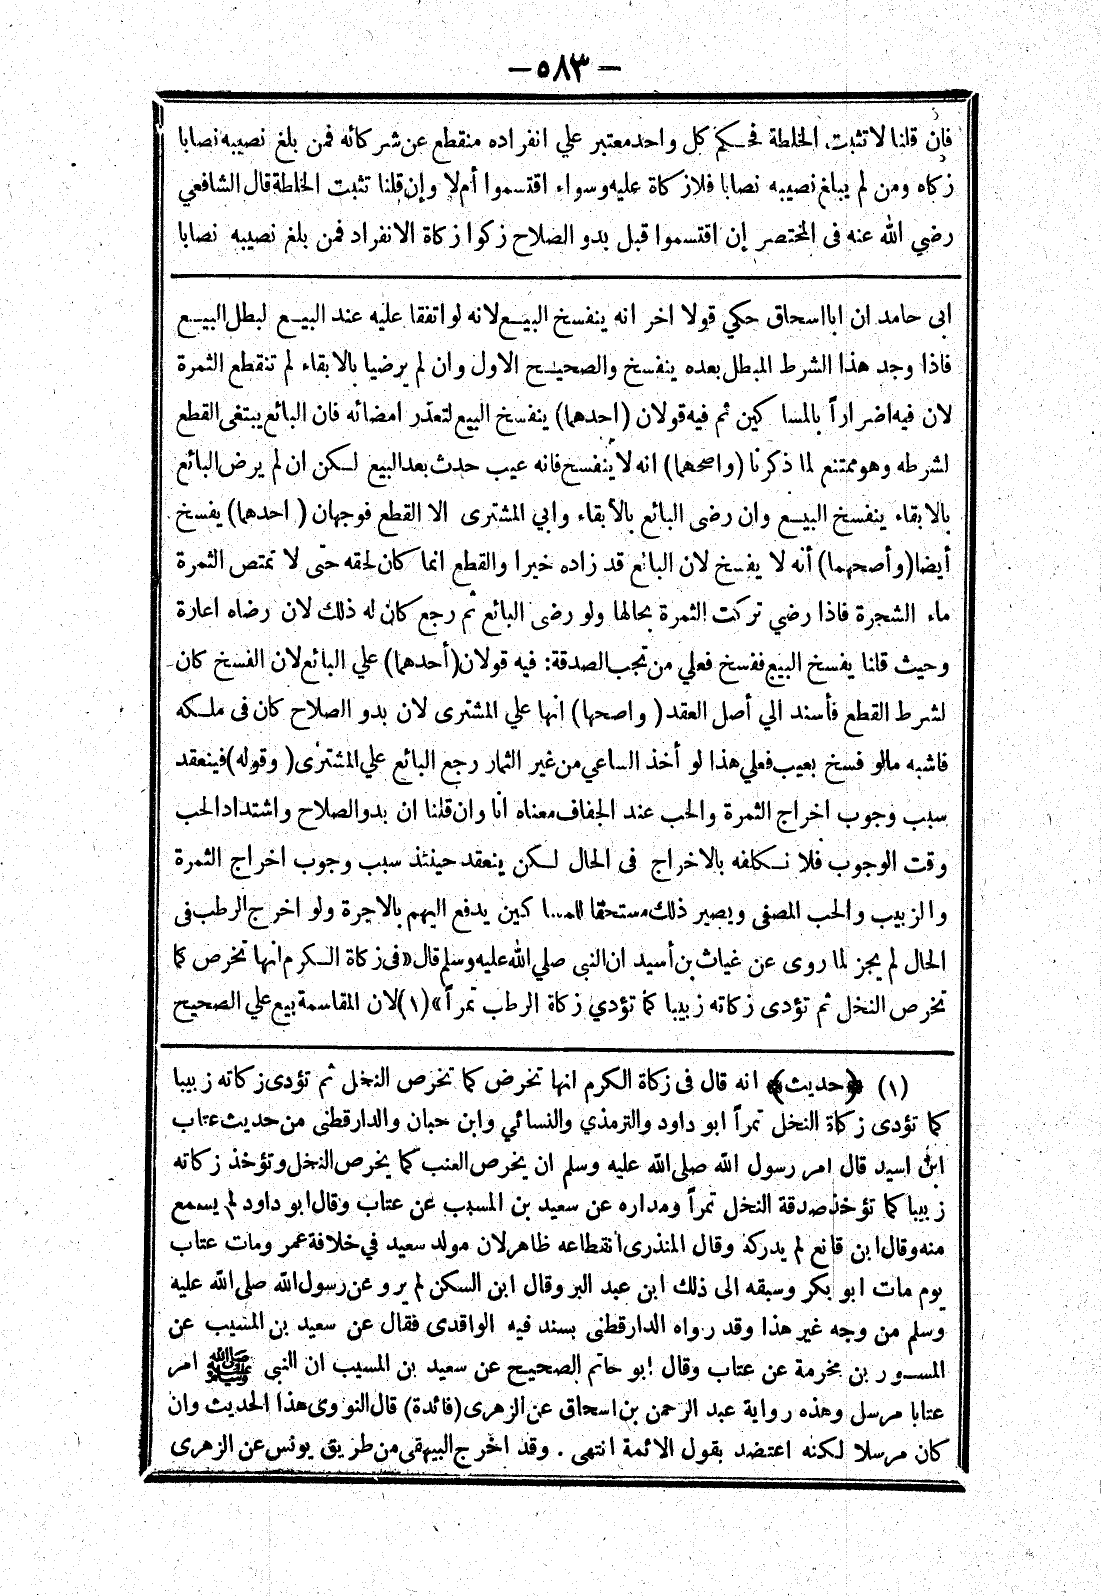 — ٥٨٣ —
فإن قلنا لا تثبت الخلطة فحكم كل واحد معتبر علي انفراده منقطع عن شركائه فمن بلغ نصيبه نصابا
زكاه ومن لم يبلغ نصيبه نصابا فلا زكاة عليه وسواء اقتسموا أم لا وإن قلنا تثبت الخلطة قال الشافعي
رضي الله عنه فى المختصر إن اقتسموا قبل بدو الصلاح زكوا زكاة الانفراد فمن بلغ نصيبه نصابا
ابى حامد ان ابا اسحاق حكي قولا اخر انه ينفسخ البيع لانه لو اتفقا عليه عند البيع لبطل البيع
فاذا وجد هذا الشرط المبطل بعده ينفسخ والصحيح الاول وان لم يرضيا بالابقاء لم تنقطع الثمرة
لان فيه اضراراً بالمساكين ثم فيه قولان (احدهما) ينفسخ البيع لتعذر امضائه فان البائع يبتغى القطع
لشرطه وهو ممتنع لما ذكرنا (واصحهما) انه لا ينفسخ فانه عيب حدث بعد البيع لكن ان لم يرض البائع
بالابقاء ينفسخ البيع وان رضى البائع بالأبقاء وابي المشترى الا القطع فوجهان (احدهما) يفسخ
أيضا (وأصحهما) أنه لا يفسخ لان البائع قد زاده خيرا والقطع انما كان لحقه حتى لا تمتص الثمرة
ماء الشجرة فاذا رضي تركت الثمرة بحالها ولو رضى البائع ثم رجع كان له ذلك لان رضاه اعارة
وحيث قلنا يفسخ البيع ففسخ فعلي من تجب الصدقة: فيه قولان (أحدهما) علي البائع لان الفسخ كان
لشرط القطع فأسند الي أصل العقد (واصحها) انها علي المشترى لان بدو الصلاح كان فى ملكه
فاشبه مالو فسخ بعيب فعلي هذا لو أخذ الساعي من غير الثمار رجع البائع علي المشترى (وقوله) فينعقد
سبب وجوب اخراج الثمرة والحب عند الجفاف معناه انا وان قلنا ان بدو الصلاح واشتداد الحب
وقت الوجوب فلا نكلفه بالاخراج فى الحال لكن ينعقد حينئذ سبب وجوب اخراج الثمرة
والزبيب والحب المصفى ويصير ذلك مستحقا للمساكين يدفع اليهم بالاجرة ولو اخرج الرطب فى
الحال لم يجز لما روى عن غياث بن أسيد ان النبي صلي الله عليه وسلم قال «فى زكاة الكرم انها تخرص كما
تخرص النخل ثم تؤدى زكاته زبيبا كما تؤدي زكاة الرطب تمراً» (١) لان المقاسمة بيع علي الصحيح
(١) ﴿حديث﴾ انه قال فى زكاة الكرم انها تخرض كما تخرص النخل ثم تؤدى زكاته زبيبا
كما تؤدى زكاة النخل تمراً ابو داود والترمذي والنسائي وابن حبان والدارقطنى من حديث عتاب
ابن اسيد قال امر رسول الله صلى الله عليه وسلم ان يخرص العنب كما يخرص النخل وتؤخذ زكاته
زبيبا كما تؤخذ صدقة النخل تمراً ومداره عن سعيد بن المسيب عن عتاب وقال ابو داود لم يسمع
منه وقال ابن قانع لم يدركه وقال المنذرى انقطاعه ظاهر لان مولد سعيد في خلافة عمر ومات عتاب
يوم مات ابو بكر وسبقه الى ذلك ابن عبد البر وقال ابن السكن لم يرو عن رسول الله صلى الله عليه
وسلم من وجه غير هذا وقد رواه الدارقطنى بسند فيه الواقدى فقال عن سعيد بن المسيب عن
المسور بن مخرمة عن عتاب وقال ابو حاتم الصحيح عن سعيد بن المسيب ان النبي ﷺ امر
عتابا مرسل وهذه رواية عبد الرحمن بن اسحاق عن الزهرى (فائدة) قال النووى هذا الحديث وان
كان مرسلا لكنه اعتضد بقول الائمة انتهى . وقد اخرج البيهقى من طريق يونس عن الزهرى